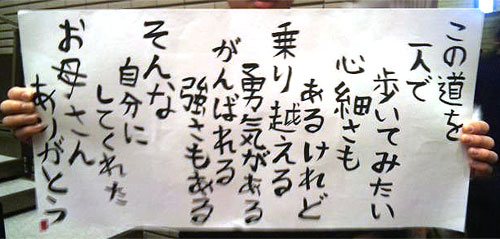 この道を
一人で
歩いてみたい
心細さも
あるけれど
乗り越える
勇気がある
がんばれる
強さもある
そんな
自分に
してくれた
お母さん
ありがとう